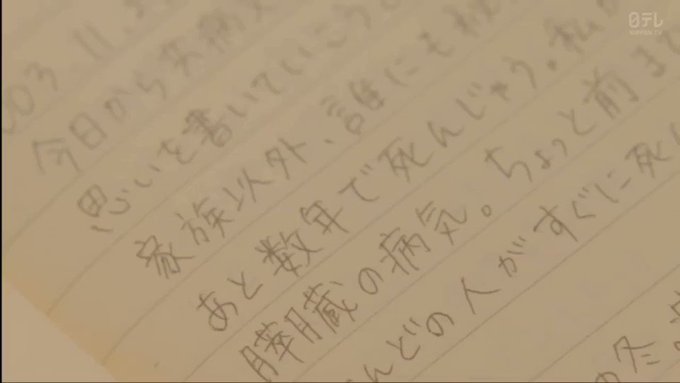 日テレ
NIPPON TV
003.11.
今日から共病文
思いを書いていこう。
家族以外、誰にも
あと数年で死んじゃう。私が
膵臓の病気。ちょっと前まで
んどの人がすぐに死ん
の冬の